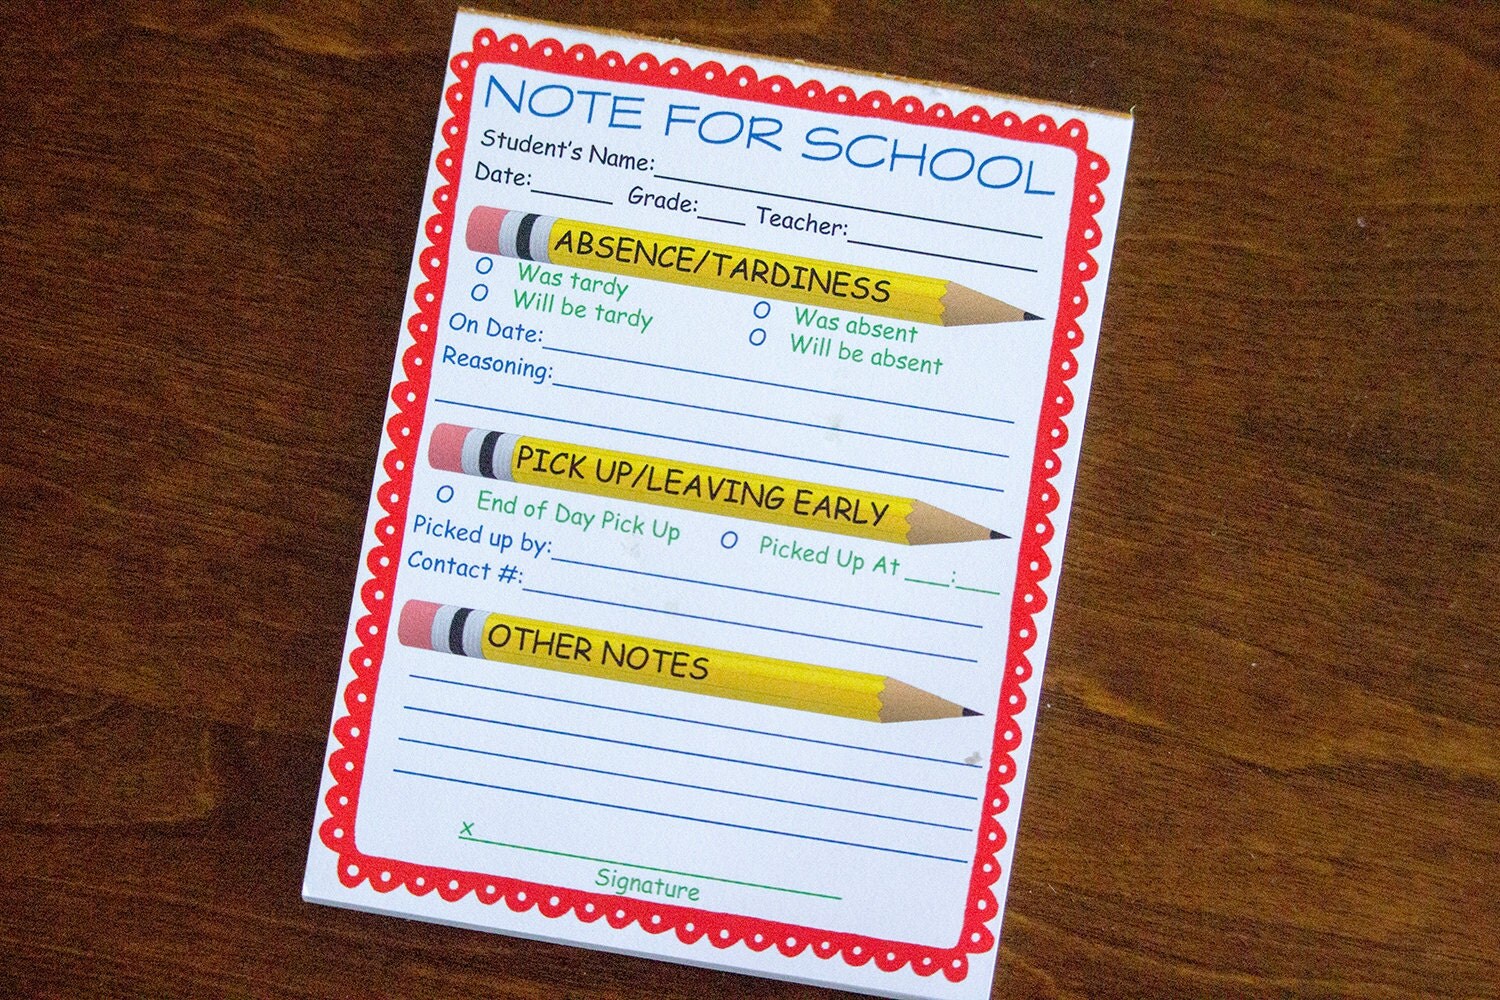 NOTE FOR SCHOOL
Student's Name:
Date: Grade: Teacher:
ABSENCE/TARDINESS
O Was tardy O Was absent
O Will be tardy O Will be absent
On Date:
Reasoning:
PICK UP/LEAVING EARLY
O End of Day Pick Up O Picked Up At ___:___
Picked up by:
Contact #:
OTHER NOTES
x
Signature